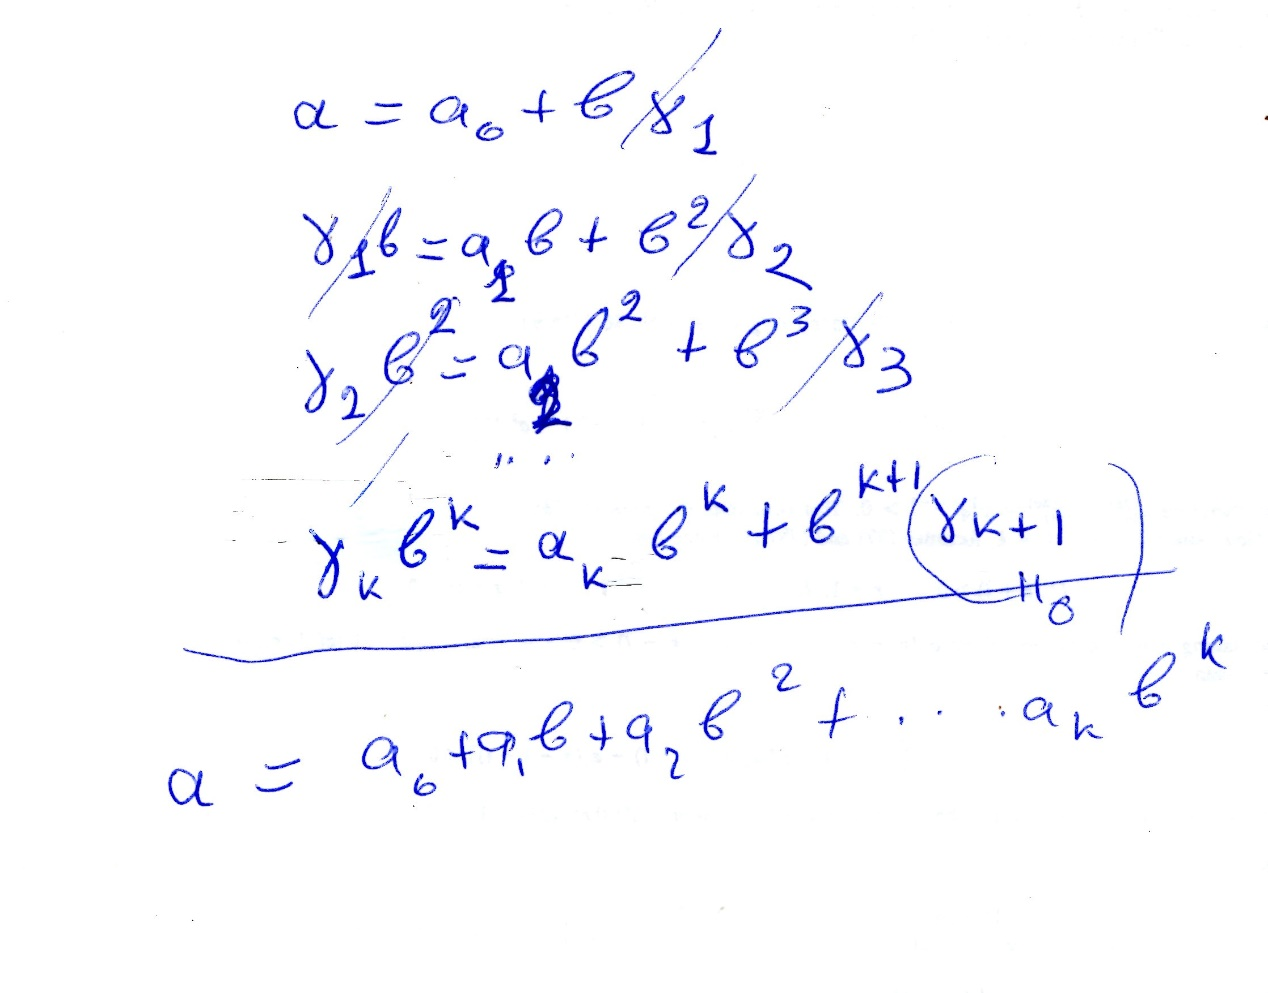 a = a₀ + b γ₁
γ₁b = a₁b + b²γ₂
γ₂b² = a₂b² + b³γ₃
....
γₖbᵏ = aₖbᵏ + bᵏ⁺¹(γₖ₊₁)
॥ 0
a = a₀ + a₁b + a₂b² + .... aₖbᵏ